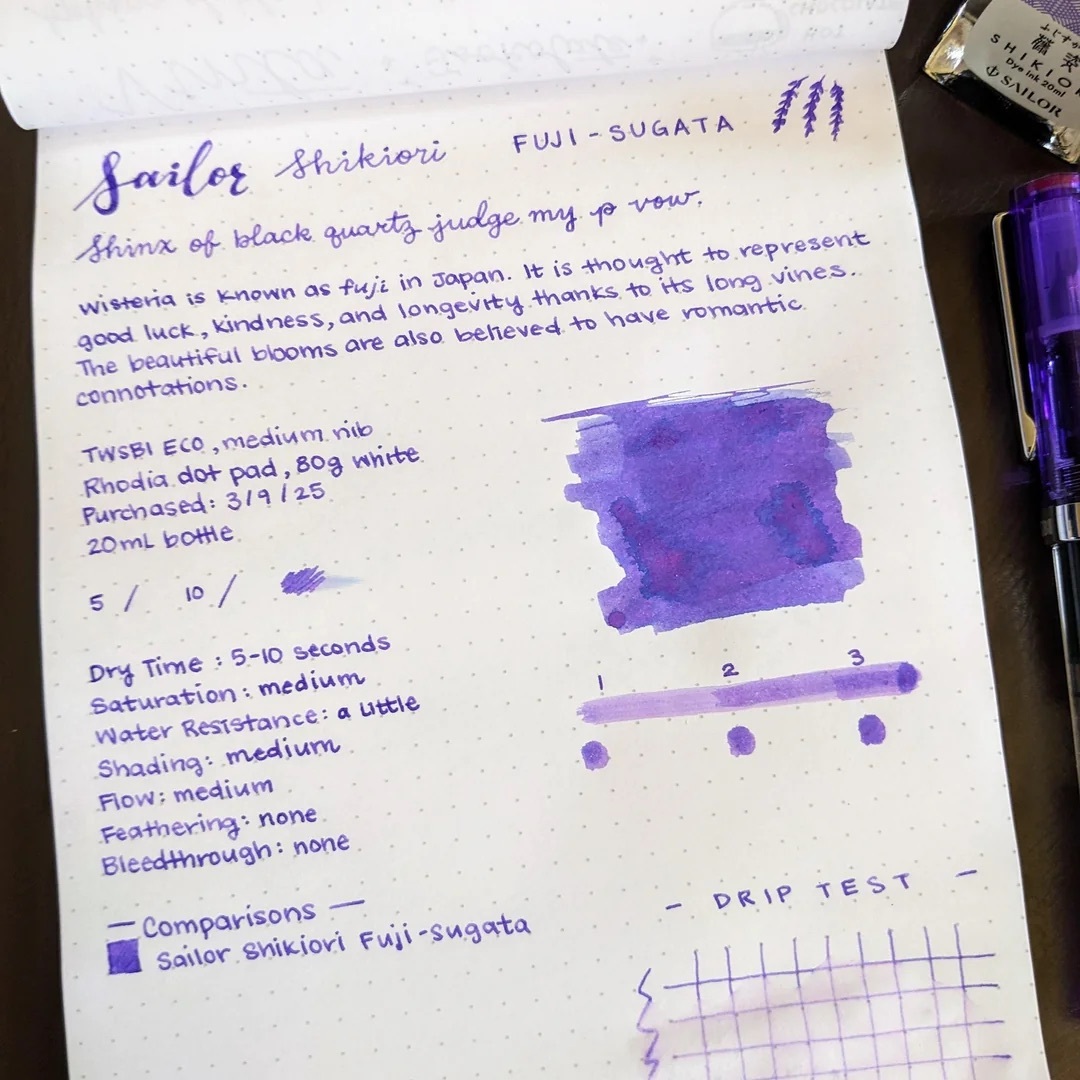 Sailor Shikiori FUJI-SUGATA
Shinx of black quartz judge my p vow.
Wisteria is known as fuji in Japan. It is thought to represent
good luck, kindness, and longevity thanks to its long vines.
The beautiful blooms are also believed to have romantic
connotations.
TWSBI ECO, medium nib
Rhodia dot pad, 80g white
Purchased: 3/9/25
20mL bottle
5 / 10 /
Dry Time: 5-10 seconds
Saturation: medium
Water Resistance: a little
Shading: medium
Flow: medium
Feathering: none
Bleedthrough: none
1 2 3
— Comparisons —
Sailor Shikiori Fuji-sugata
- DRIP TEST -
ふじすが
藤姿
SHIKIO
Dye ink 20ml
SAILOR